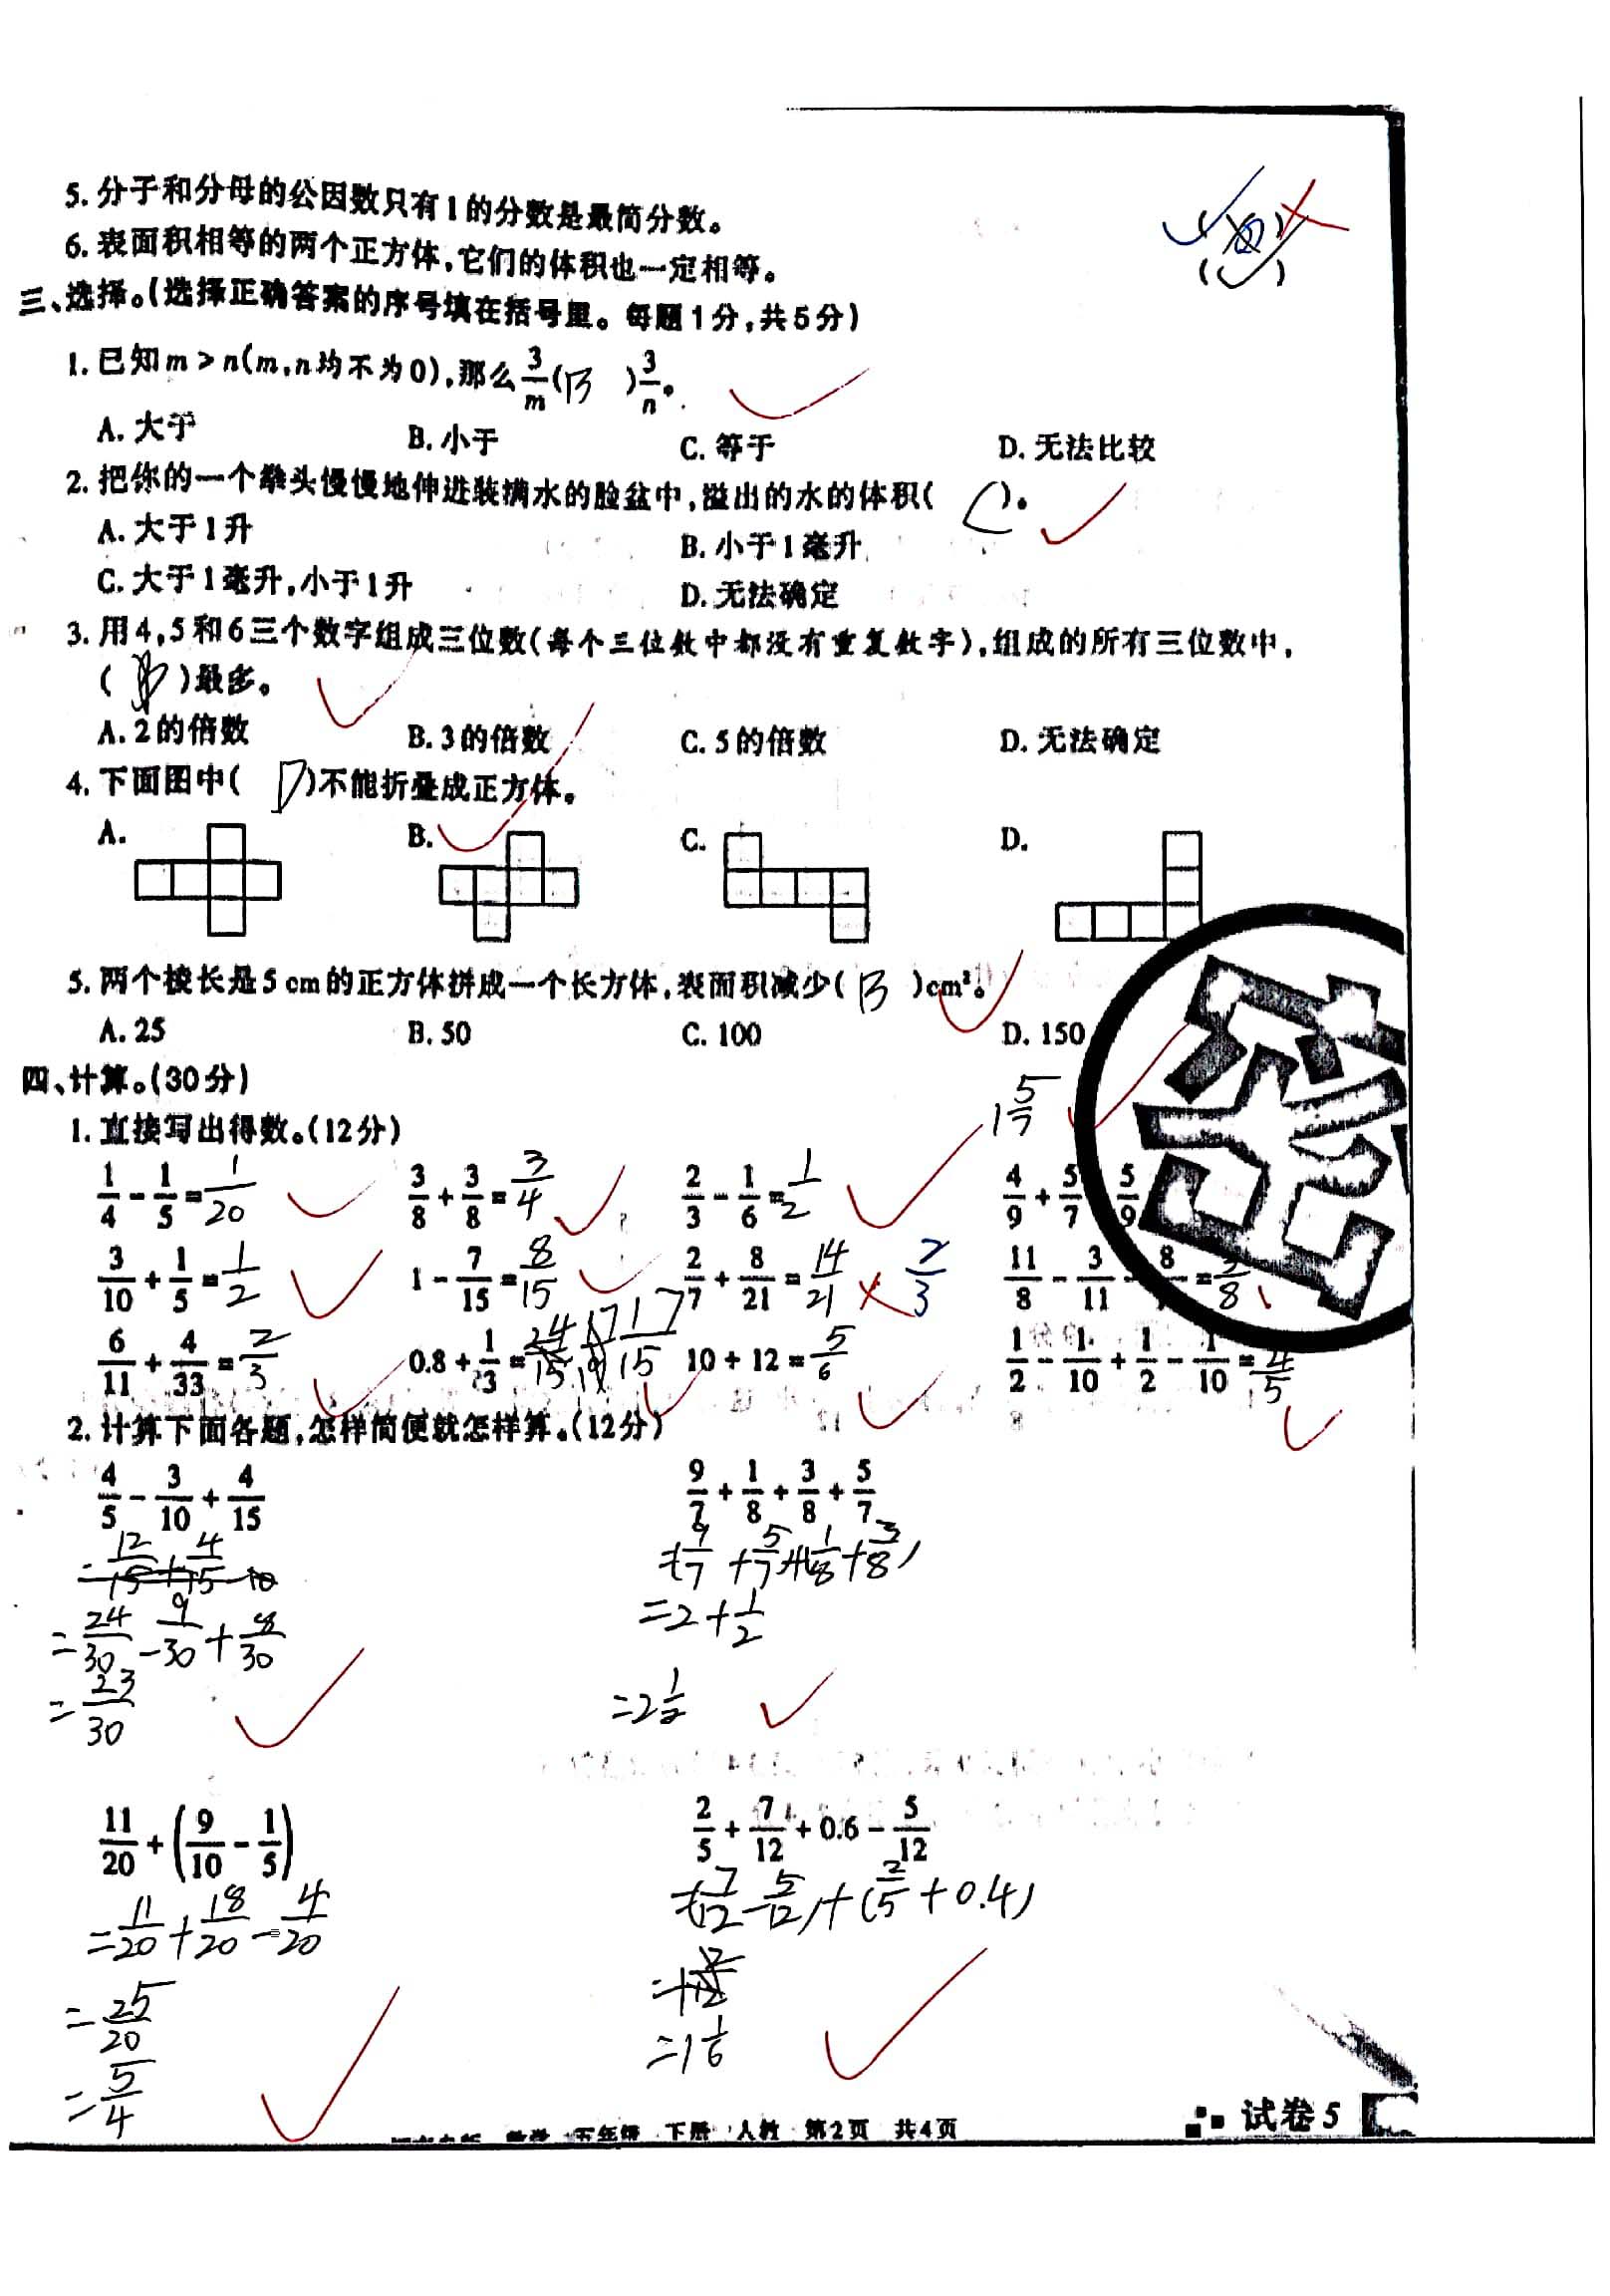 5. 分子和分母的公因数只有1的分数是最简分数。
6. 表面积相等的两个正方体,它们的体积也一定相等。 (✓)
三、选择。(选择正确答案的序号填在括号里。每题1分,共5分)
1. 已知m>n(m,n均不为0),那么3/m(B)3/n。
A. 大于 B. 小于 C. 等于 D. 无法比较
2. 把你的一个拳头慢慢地伸进装满水的脸盆中,溢出的水的体积(C)。
A. 大于1升 B. 小于1毫升
C. 大于1毫升,小于1升 D. 无法确定
3. 用4,5和6三个数字组成三位数(每个三位数中都没有重复数字),组成的所有三位数中,
(B)最多。
A. 2的倍数 B. 3的倍数 C. 5的倍数 D. 无法确定
4. 下面图中(D)不能折叠成正方体。
A. B. C. D.
5. 两个棱长是5 cm的正方体拼成一个长方体,表面积减少(B)cm²。
A. 25 B. 50 C. 100 D. 150
四、计算。(30分)
1. 直接写出得数。(12分)
1 5/7
1/4 - 1/5 = 1/20 3/8 + 3/8 = 3/4 2/3 - 1/6 = 1/2 4/9 + 5/7 5/9
3/10 + 1/5 = 1/2 1 - 7/15 = 8/15 2/7 + 8/21 = 14/21 2/3 11/8 - 3/11 - 8 = /8
6/11 + 4/33 = 2/3 0.8 + 1/3 = 17/15 10 ÷ 12 = 5/6 1/2 - 1/10 + 1/2 - 1/10 = 4/5
2. 计算下面各题,怎样简便就怎样算。(12分)
4/5 - 3/10 + 4/15
= 24/30 - 9/30 + 8/30
= 23/30
9/7 + 1/8 + 3/8 + 5/7
= (9/7 + 5/7) + (1/8 + 3/8)
= 2 + 1/2
= 2 1/2
11/20 + (9/10 - 1/5)
= 11/20 + 18/20 - 4/20
= 25/20
= 5/4
2/5 + 7/12 + 0.6 - 5/12
= (7/12 - 5/12) + (2/5 + 0.4)
= 1 2/12
= 1 1/6
密
数学 五年级 下册 人教 第2页 共4页
试卷5